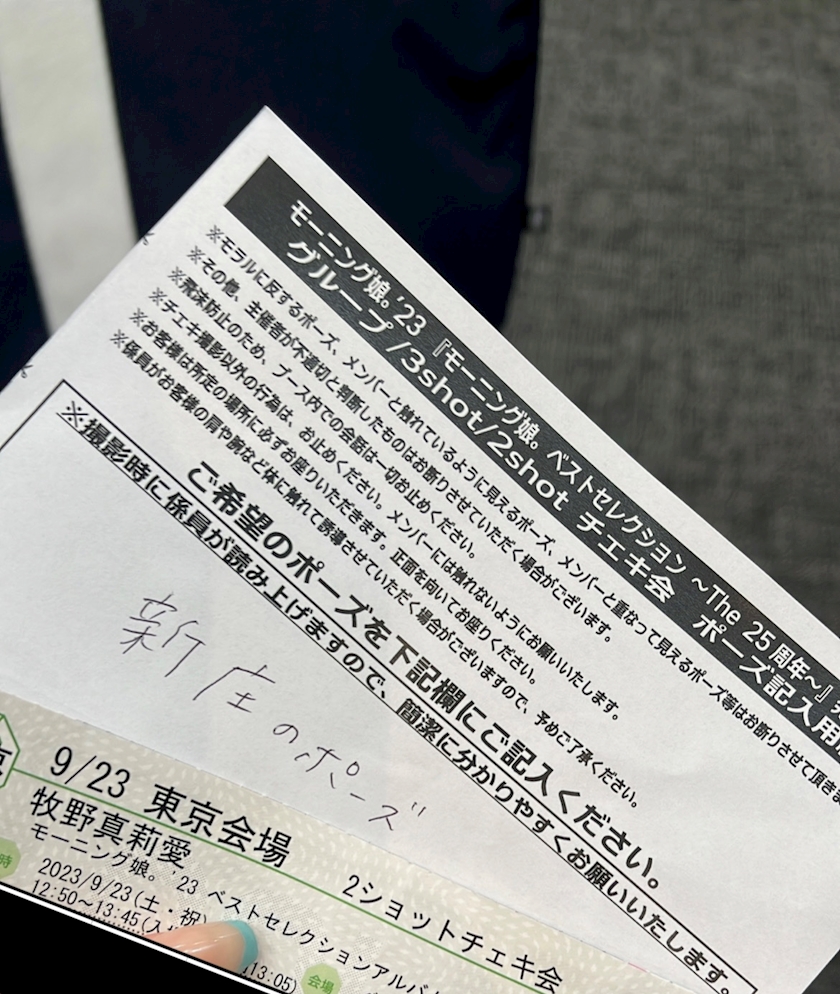 モーニング娘。'23 『モーニング娘。ベストセレクション ～The 25周年～』
グループ/3shot/2shot チェキ会 ポーズ記入用
※モラルに反するポーズ、メンバーと触れているように見えるポーズ、メンバーと重なって見えるポーズ等はお断りさせて頂きま
※その他、主催者が不適切と判断したものはお断りさせていただく場合がございます。
※飛沫防止のため、ブース内での会話は一切お止めください。
※チェキ撮影以外の行為は、お止めください。メンバーには触れないようにお願いいたします。
※お客様は所定の場所に必ずお座りいただきます。正面を向いてお座りください。
※係員がお客様の肩や腕など体に触れて誘導させていただく場合がございますので、予めご了承ください。
ご希望のポーズを下記欄にご記入ください。
※撮影時に係員が読み上げますので、簡潔に分かりやすくお願いいたします。
新庄のポーズ
9/23 東京会場 2ショットチェキ会
牧野真莉愛
モーニング娘。'23 ベストセレクションアルバム
2023/9/23(土・祝)
12:50～13:45(入
13:05)
会場